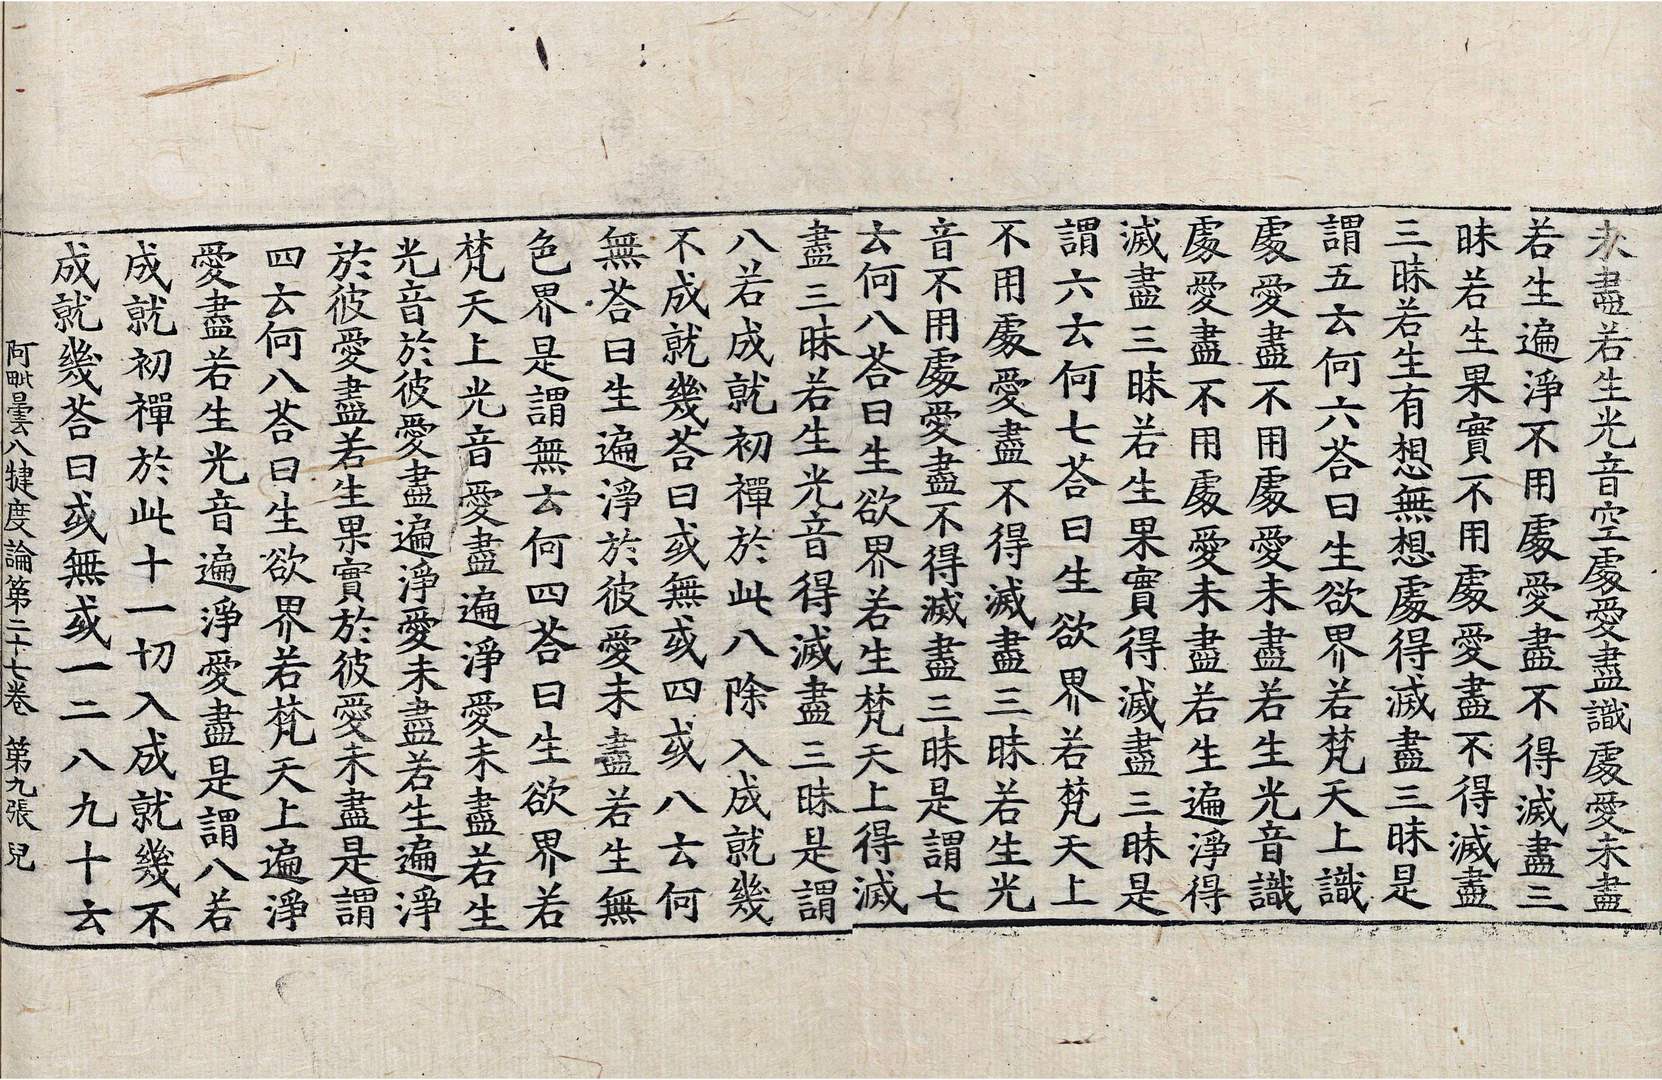 未盡若生光音空處愛盡識處愛未盡
若生遍淨不用處愛盡不得滅盡三
昧若生果實不用處愛盡不得滅盡
三昧若生有想無想處得滅盡三昧是
謂五云何六荅曰生欲界若梵天上識
處愛盡不用處愛未盡若生光音識
處愛盡不用處愛未盡若生遍淨得
滅盡三昧若生果實得滅盡三昧是
謂六云何七荅曰生欲界若梵天上
不用處愛盡不得滅盡三昧若生光
音不用處愛盡不得滅盡三昧是謂七
云何八荅曰生欲界若生梵天上得滅
盡三昧若生光音得滅盡三昧是謂
八若成就初禪於此八除入成就幾
不成就幾荅曰或無或四或八云何
無荅曰生遍淨於彼愛未盡若生無
色界是謂無云何四荅曰生欲界若
梵天上光音愛盡遍淨愛未盡若生
光音於彼愛盡遍淨愛未盡若生遍淨
於彼愛盡若生果實於彼愛未盡是謂
四云何八荅曰生欲界若梵天上遍淨
愛盡若生光音遍淨愛盡是謂八若
成就初禪於此十一切入成就幾不
成就幾荅曰或無或一二八九十云
阿毗曇八犍度論第二十七卷 第九張 兒